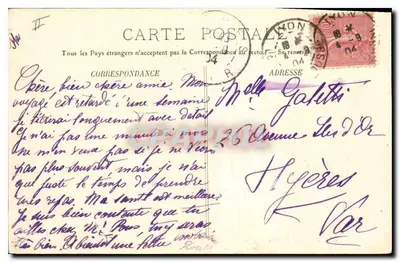 CARTE POSTALE
Tous les Pays étrangers n'acceptent pas la Correspondance au recto. Se renseigner
CORRESPONDANCE
ADRESSE
LYON
04
LYON
04
04
II
Chère, bien chère amie. Mon
voyage est retardé d'une semaine
je t'écrirai longuement avec détails
Je n'ai pas une minute à moi
ne m'en veux pas si je ne viens
pas plus souvent mais je n'ai
que juste le temps de prendre
mes repas. Ma santé est meilleure
Je suis bien contente que tu
ailles chez M. Pons, tu y seras
très bien. Et bientôt une lettre
Melle Galetti
26 Avenue Iles d'Or
Hyères
Var